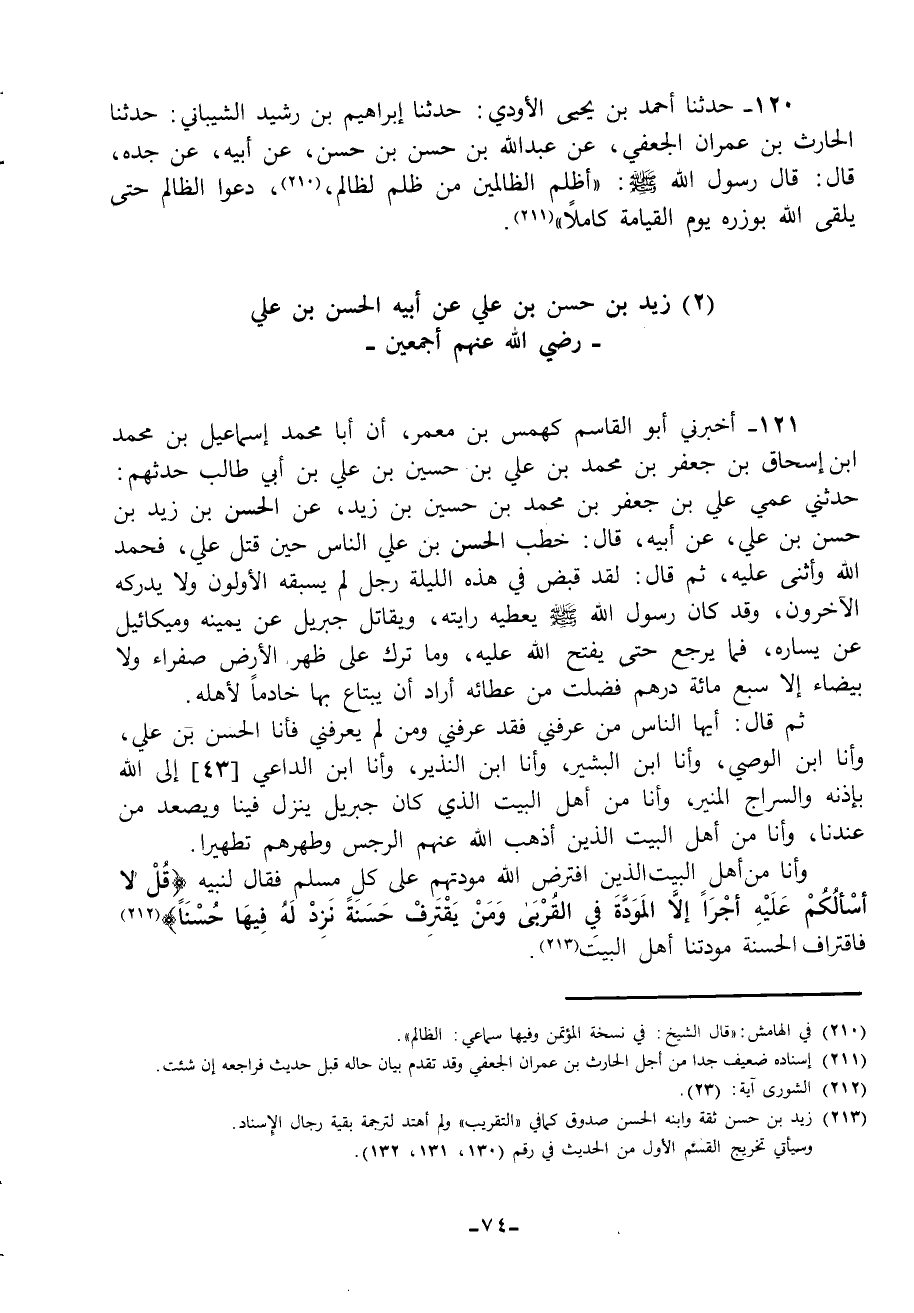 ١٢٠ـ حدثنا أحمد بن يحيى الأودي: حدثنا إبراهيم بن رشيد الشيباني: حدثنا
الحارث بن عمران الجعفي، عن عبدالله بن حسن بن حسن، عن أبيه، عن جده،
قال: قال رسول الله ﷺ: «أظلم الظالمين من ظلم لظالم،(٢١٠)، دعوا الظالم حتى
يلقى الله بوزره يوم القيامة كاملاً»(٢١١).
(٢) زيد بن حسن بن علي عن أبيه الحسن بن علي
ـ رضي الله عنهم أجمعين ـ
١٢١ـ أخبرني أبو القاسم كهمس بن معمر، أن أبا محمد إسماعيل بن محمد
ابن إسحاق بن جعفر بن محمد بن علي بن حسين بن علي بن أبي طالب حدثهم:
حدثني عمي علي بن جعفر بن محمد بن حسين بن زيد، عن الحسن بن زيد بن
حسن بن علي، عن أبيه، قال: خطب الحسن بن علي الناس حين قتل علي، فحمد
الله وأثنى عليه، ثم قال: لقد قبض في هذه الليلة رجل لم يسبقه الأولون ولا يدركه
الآخرون، وقد كان رسول الله ﷺ يعطيه رايته، ويقاتل جبريل عن يمينه وميكائيل
عن يساره، فما يرجع حتى يفتح الله عليه، وما ترك على ظهر الأرض صفراء ولا
بيضاء إلا سبع مائة درهم فضلت من عطائه أراد أن يبتاع بها خادماً لأهله.
ثم قال: أيها الناس من عرفني فقد عرفني ومن لم يعرفني فأنا الحسن بن علي،
وأنا ابن الوصي، وأنا ابن البشير، وأنا ابن النذير، وأنا ابن الداعي [٤٣] إلى الله
بإذنه والسراج المنير، وأنا من أهل البيت الذي كان جبريل ينزل فينا ويصعد من
عندنا، وأنا من أهل البيت الذين أذهب الله عنهم الرجس وطهرهم تطهيرا.
وأنا من أهل البيت الذين افترض الله مودتهم على كل مسلم فقال لنبيه ﴿قُلْ لا
أسْألُكُمْ عَلَيْهِ أجْرَاً إلاَّ المَوَدَّةَ فِي القُرْبَى وَمَنْ يَقْتَرِفْ حَسَنَةً نَزِدْ لَهُ فِيهَا حُسْنَاً﴾(٢١٢)
فاقتراف الحسنة مودتنا أهل البيت(٢١٣).
(٢١٠) في الهامش: «قال الشيخ: في نسخة المؤتمن وفيها سماعي: الظالم».
(٢١١) إسناده ضعيف جدا من أجل الحارث بن عمران الجعفي وقد تقدم بيان حاله قبل حديث فراجعه إن شئت.
(٢١٢) الشورى آية: (٢٣).
(٢١٣) زيد بن حسن ثقة وابنه الحسن صدوق كمافي «التقريب» ولم أهتد لترجمة بقية رجال الإسناد.
وسيأتي تخريج القسم الأول من الحديث في رقم (١٣٠، ١٣١، ١٣٢).
ـ٧٤ـ